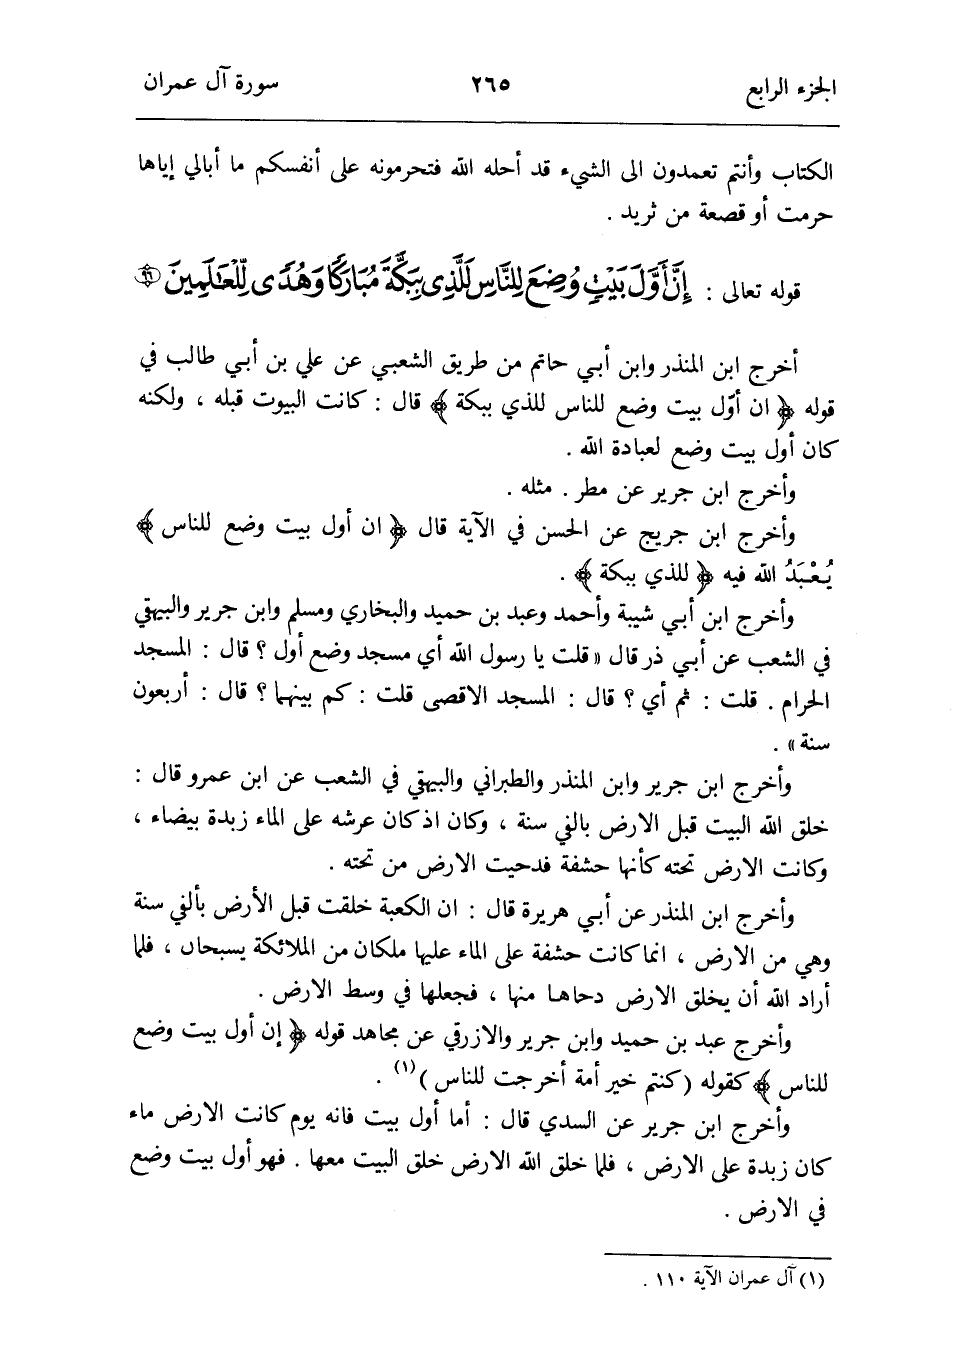 الجزء الرابع ٢٦٥ سورة آل عمران
الكتاب وأنتم تعمدون الى الشيء قد أحله الله فتحرمونه على أنفسكم ما أبالي إياها
حرمت أو قصعة من ثريد .
قوله تعالى : إِنَّ أَوَّلَ بَيْتٍ وُضِعَ لِلنَّاسِ لَلَّذِى بِبَكَّةَ مُبَارَكًا وَهُدًى لِّلْعَـٰلَمِينَ ٩٦
أخرج ابن المنذر وابن أبي حاتم من طريق الشعبي عن علي بن أبي طالب في
قوله ﴿ ان أوّل بيت وضع للناس للذي ببكة ﴾ قال : كانت البيوت قبله ، ولكنه
كان أول بيت وضع لعبادة الله .
وأخرج ابن جرير عن مطر . مثله .
وأخرج ابن جريج عن الحسن في الآية قال ﴿ ان أول بيت وضع للناس ﴾
يُعْبَدُ الله فيه ﴿ للذي ببكة ﴾ .
وأخرج ابن أبي شيبة وأحمد وعبد بن حميد والبخاري ومسلم وابن جرير والبيهقي
في الشعب عن أبي ذر قال « قلت يا رسول الله أي مسجد وضع أول ؟ قال : المسجد
الحرام . قلت : ثم أي ؟ قال : المسجد الاقصى قلت : كم بينهما ؟ قال : أربعون
سنة » .
وأخرج ابن جرير وابن المنذر والطبراني والبيهقي في الشعب عن ابن عمرو قال :
خلق الله البيت قبل الارض بالفي سنة ، وكان اذ كان عرشه على الماء زبدة بيضاء ،
وكانت الارض تحته كأنها حشفة فدحيت الارض من تحته .
وأخرج ابن المنذر عن أبي هريرة قال : ان الكعبة خلقت قبل الأرض بألفي سنة
وهي من الارض ، انما كانت حشفة على الماء عليها ملكان من الملائكة يسبحان ، فلما
أراد الله أن يخلق الارض دحاها منها ، فجعلها في وسط الارض .
وأخرج عبد بن حميد وابن جرير والازرقي عن مجاهد قوله ﴿ إن أول بيت وضع
للناس ﴾ كقوله ( كنتم خير أمة أخرجت للناس )(١) .
وأخرج ابن جرير عن السدي قال : أما أول بيت فانه يوم كانت الارض ماء
كان زبدة على الارض ، فلما خلق الله الارض خلق البيت معها . فهو أول بيت وضع
في الارض .
(١) آل عمران الآية ١١٠ .